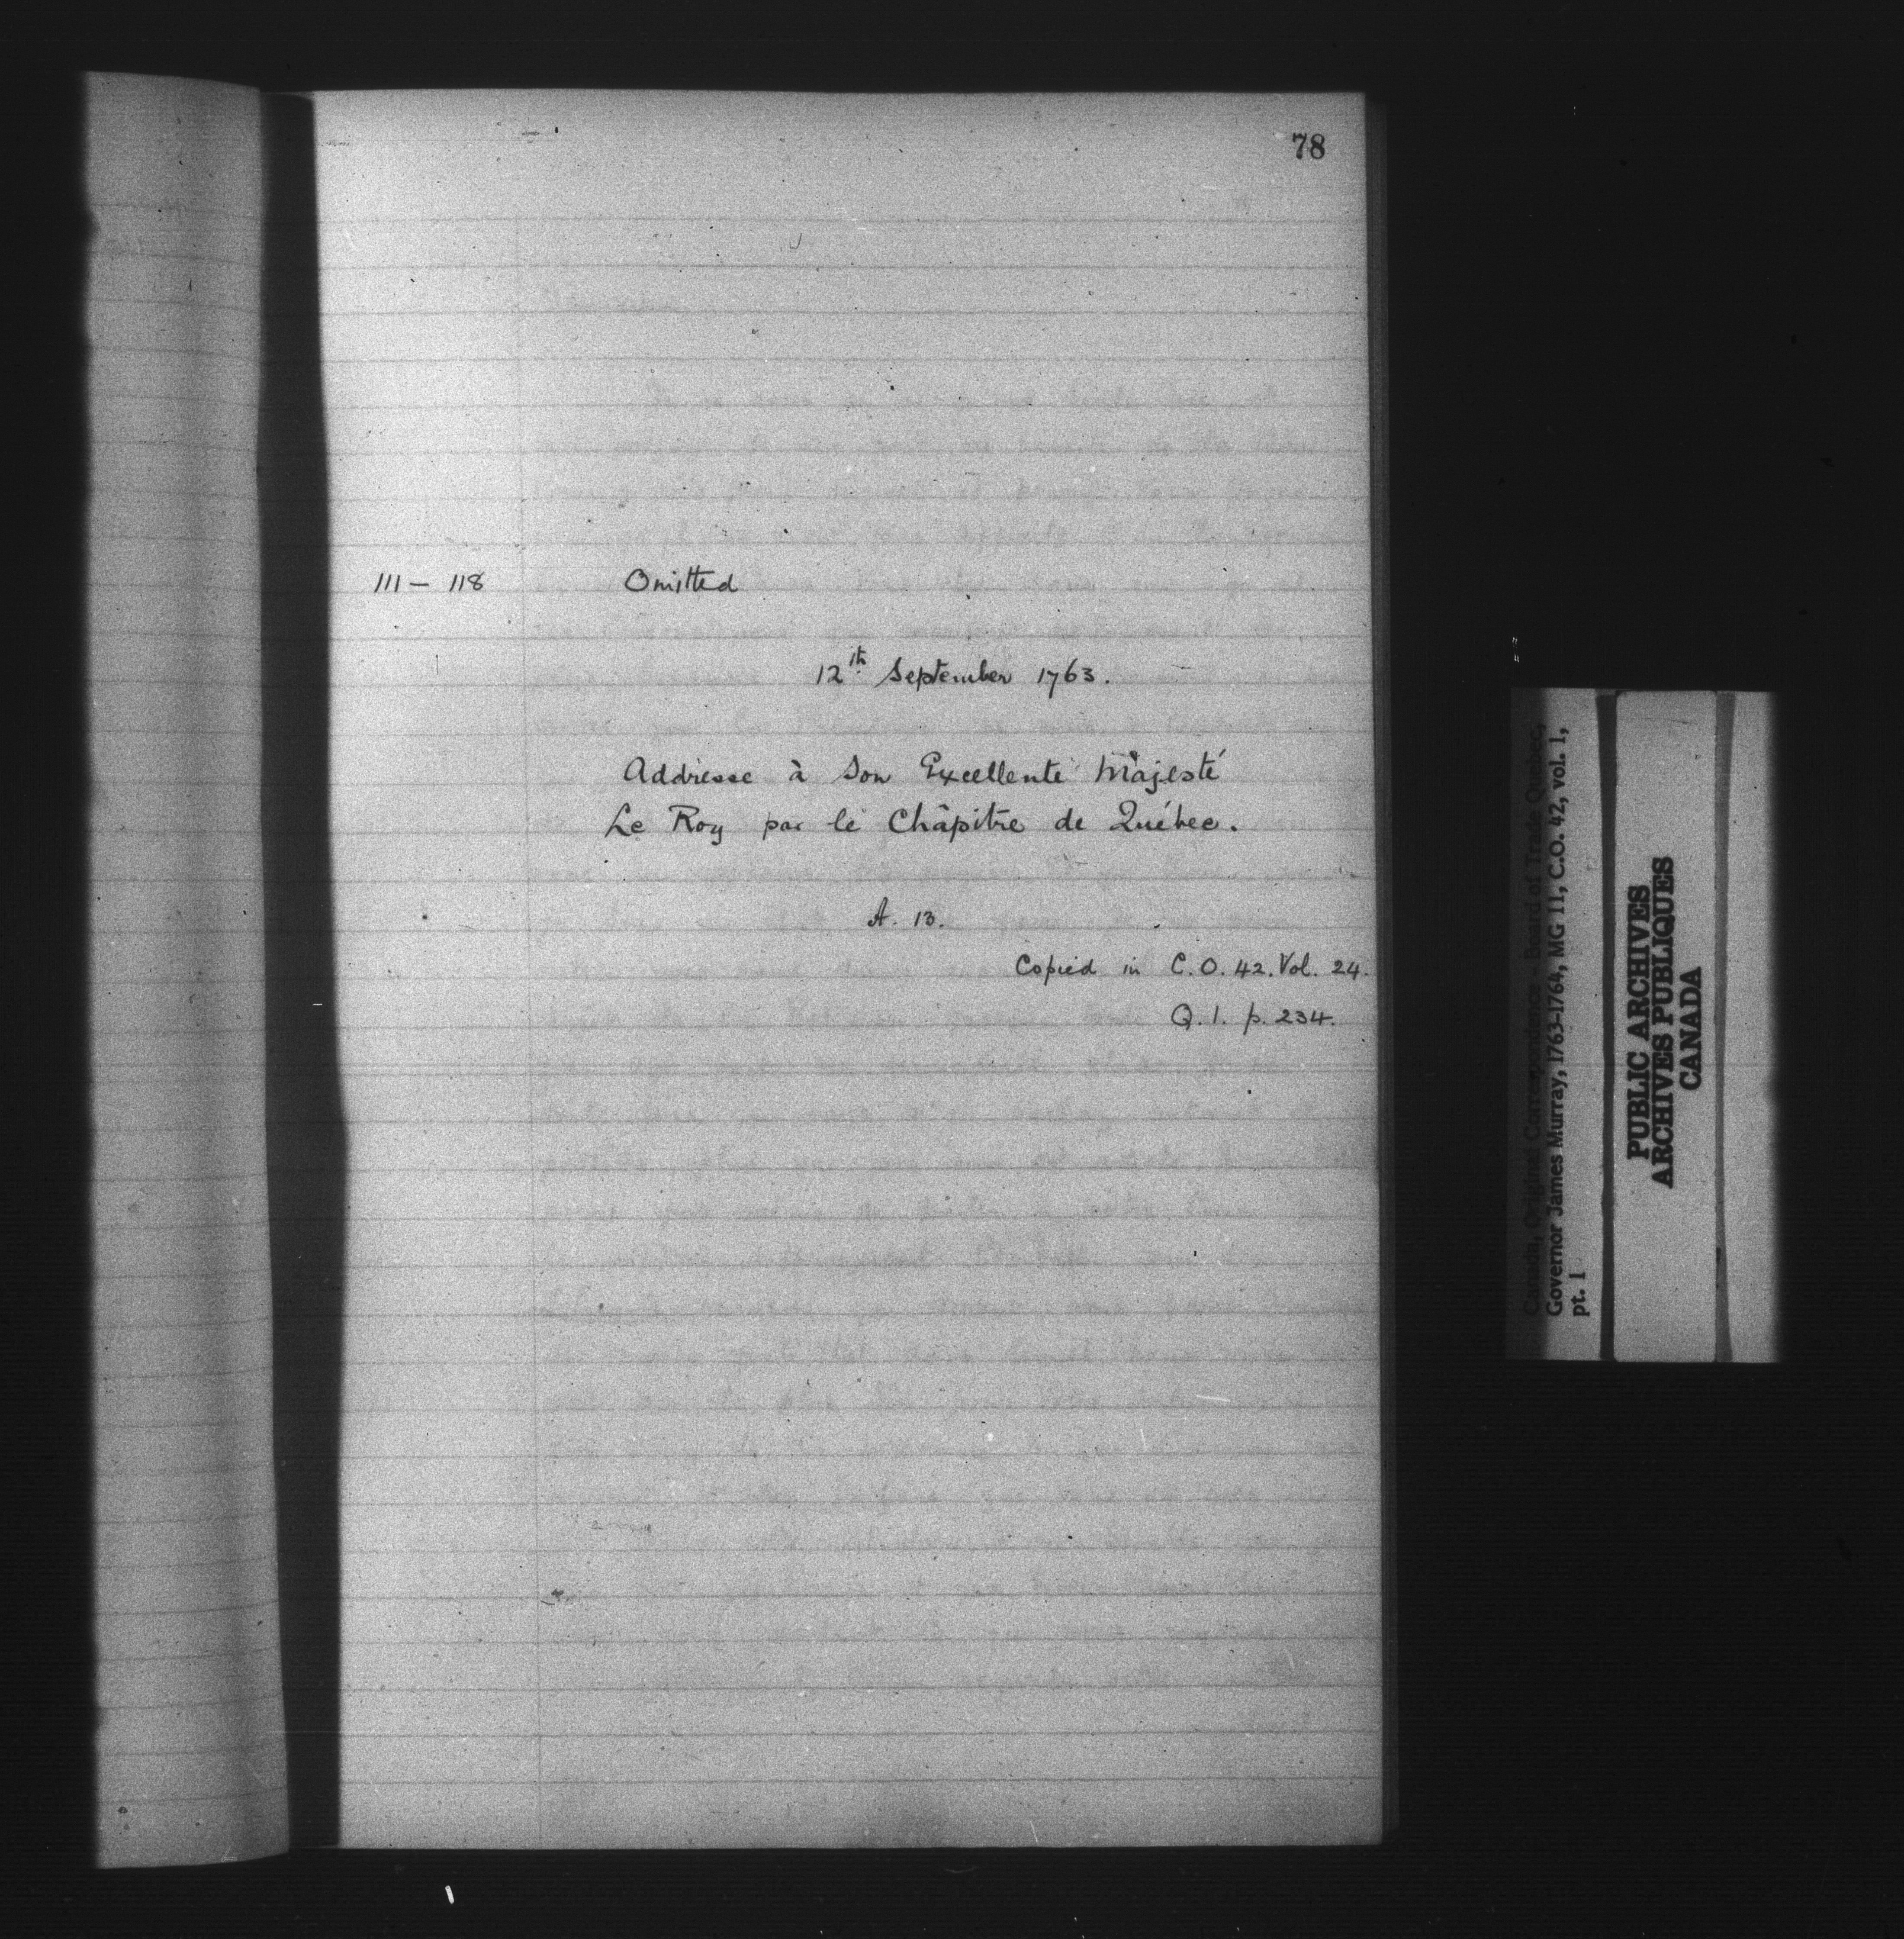 78
111 — 118 Omitted
12th September 1763.
Addresse à Son Excellente Majesté
Le Roy par le Châpitre de Québec.
A. 13.
Copied in C.O. 42. Vol. 24.
Q. 1. p. 234.
Canada, Original Correspondence - Board of Trade Quebec,
Governor James Murray, 1763-1764, MG 11, C.O. 42, vol. 1,
pt. 1
PUBLIC ARCHIVES
ARCHIVES PUBLIQUES
CANADA